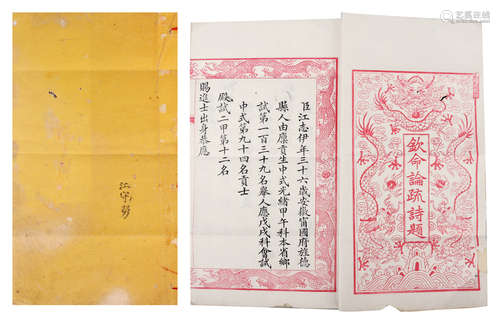 欽命論疏詩題
臣江志伊年三十六歲安徽甯國府旌德
縣人由廩貢生中式光緒甲午科本省鄉
試第一百三十九名舉人應戊戌科會試
中式第九十四名貢士
殿試二甲第十二名
賜進士出身恭應